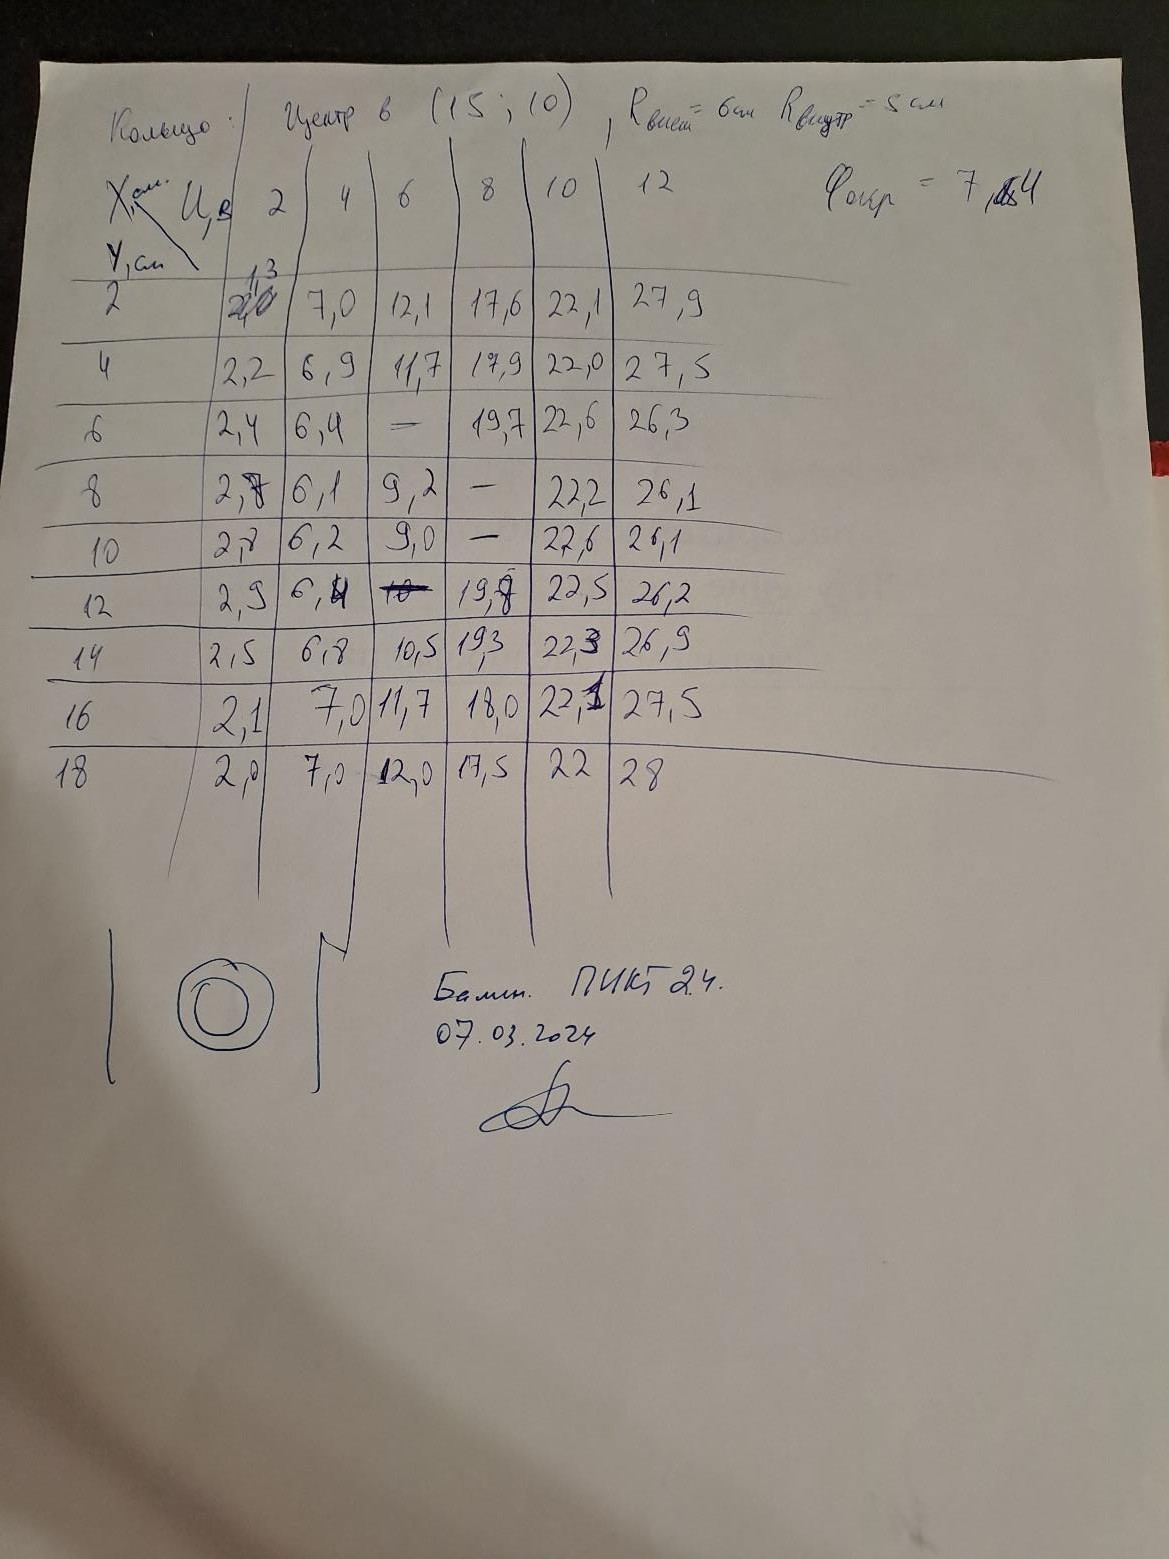 Кольцо: Центр в (15; 10), Rвнеш = 6см Rвнутр = 5 см
X, см. U, в 2 4 6 8 10 12 φокр = 7,4
Y, см
1,3
2 7,0 12,1 17,6 22,1 27,9
4 2,2 6,9 11,7 17,9 22,0 27,5
6 2,4 6,4 — 19,7 22,6 26,3
8 2,7 6,1 9,2 — 22,2 26,1
10 2,8 6,2 9,0 — 22,6 26,1
12 2,9 6,4 19,8 22,5 26,2
14 2,5 6,8 10,5 19,3 22,3 26,9
16 2,1 7,0 11,7 18,0 22,1 27,5
18 2,0 7,0 12,0 17,5 22 28
ПИКТ 24.
07.03.2024